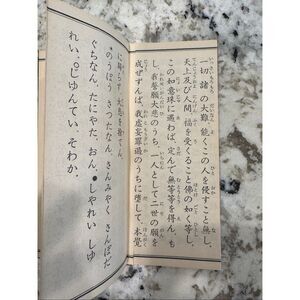 一切諸の大難、能くこの人を侵すこと無し、
天上及び人間、福を受くること佛の如く等し、
この如意珠に遇わば、定んで無等等を得ん、も
し、我誓願大悲のうち、一人として二世の願を
成ぜずんば、我虚妄罪過のうちに堕して、本覺
に歸らず、大悲を捨てん。
のうぼう さつたなん さんみやく さんぼだ
ぐちなん たにやた。おん。しやれい しゆ
れい。しゆんてい。そわか。